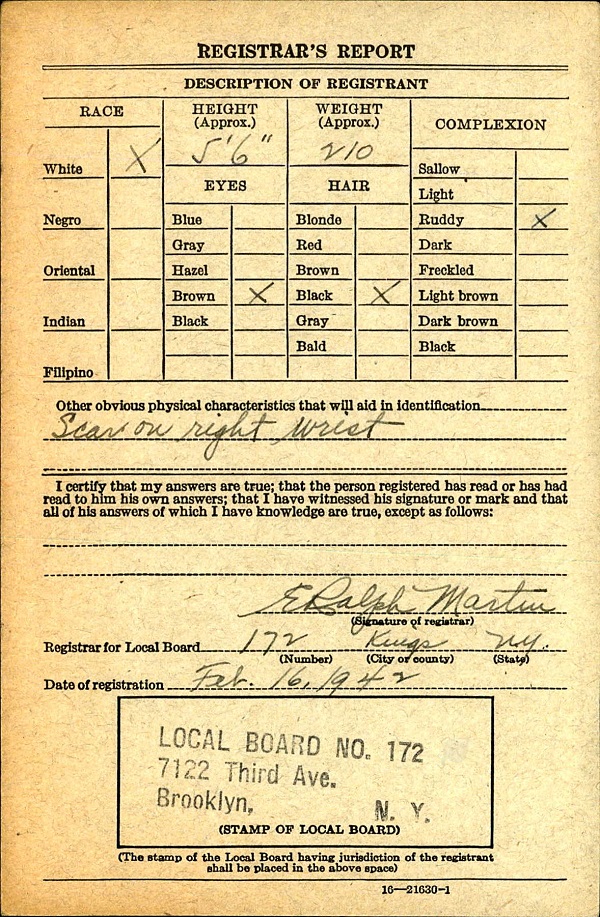 REGISTRAR'S REPORT
DESCRIPTION OF REGISTRANT
RACE
HEIGHT
(Approx.)
WEIGHT
(Approx.)
COMPLEXION
5'6"
210
White X
Negro
Oriental
Indian
Filipino
EYES
Blue
Gray
Hazel
Brown X
Black
HAIR
Blonde
Red
Brown
Black X
Gray
Bald
Sallow
Light
Ruddy X
Dark
Freckled
Light brown
Dark brown
Black
Other obvious physical characteristics that will aid in identification
Scar on right wrist
I certify that my answers are true; that the person registered has read or has had
read to him his own answers; that I have witnessed his signature or mark and that
all of his answers of which I have knowledge are true, except as follows:
E Ralph Martin
(Signature of registrar)
Registrar for Local Board 172 Kings N.Y.
(Number) (City or county) (State)
Date of registration Feb. 16, 1942
LOCAL BOARD NO. 172
7122 Third Ave.
Brooklyn, N. Y.
(STAMP OF LOCAL BOARD)
(The stamp of the Local Board having jurisdiction of the registrant
shall be placed in the above space)
16—21630-1